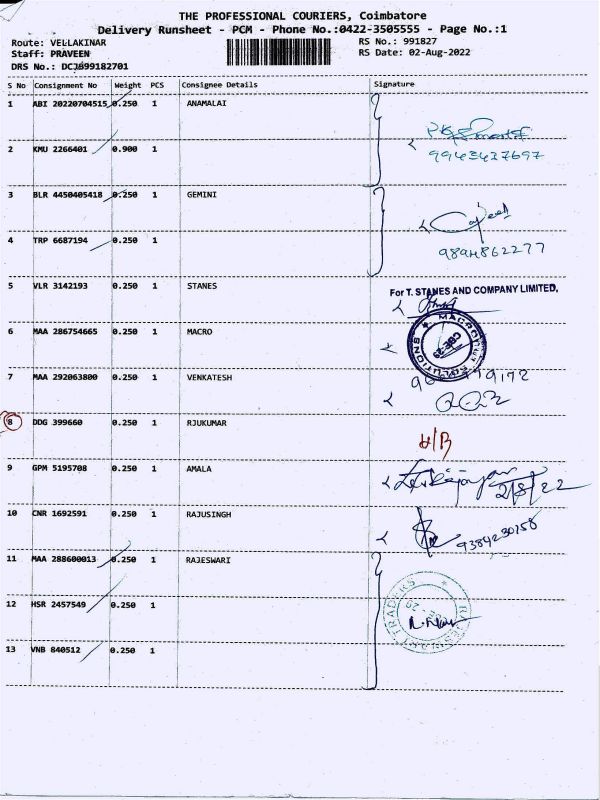 THE PROFESSIONAL COURIERS, Coimbatore
Delivery Runsheet - PCM - Phone No.:0422-3505555 - Page No.:1
Route: VELLAKINAR RS No.: 991827
Staff: PRAVEEN RS Date: 02-Aug-2022
DRS No.: DCJ699182701
S No Consignment No Weight PCS Consignee Details Signature
1 ABI 20220704515 0.250 1 ANAMALAI
2 KMU 2266401 0.900 1
9943437697
3 BLR 4450405418 0.250 1 GEMINI
4 TRP 6687194 0.250 1
9894862277
5 VLR 3142193 0.250 1 STANES
For T. STANES AND COMPANY LIMITED,
6 MAA 286754665 0.250 1 MACRO
7 MAA 292063800 0.250 1 VENKATESH
8 DDG 399660 0.250 1 RJUKUMAR
9 GPM 5195708 0.250 1 AMALA
2/8/22
10 CNR 1692591 0.250 1 RAJUSINGH
9384230158
11 MAA 288600013 0.250 1 RAJESWARI
12 HSR 2457549 0.250 1
RAJESWARI TRADERS
13 VNB 840512 0.250 1